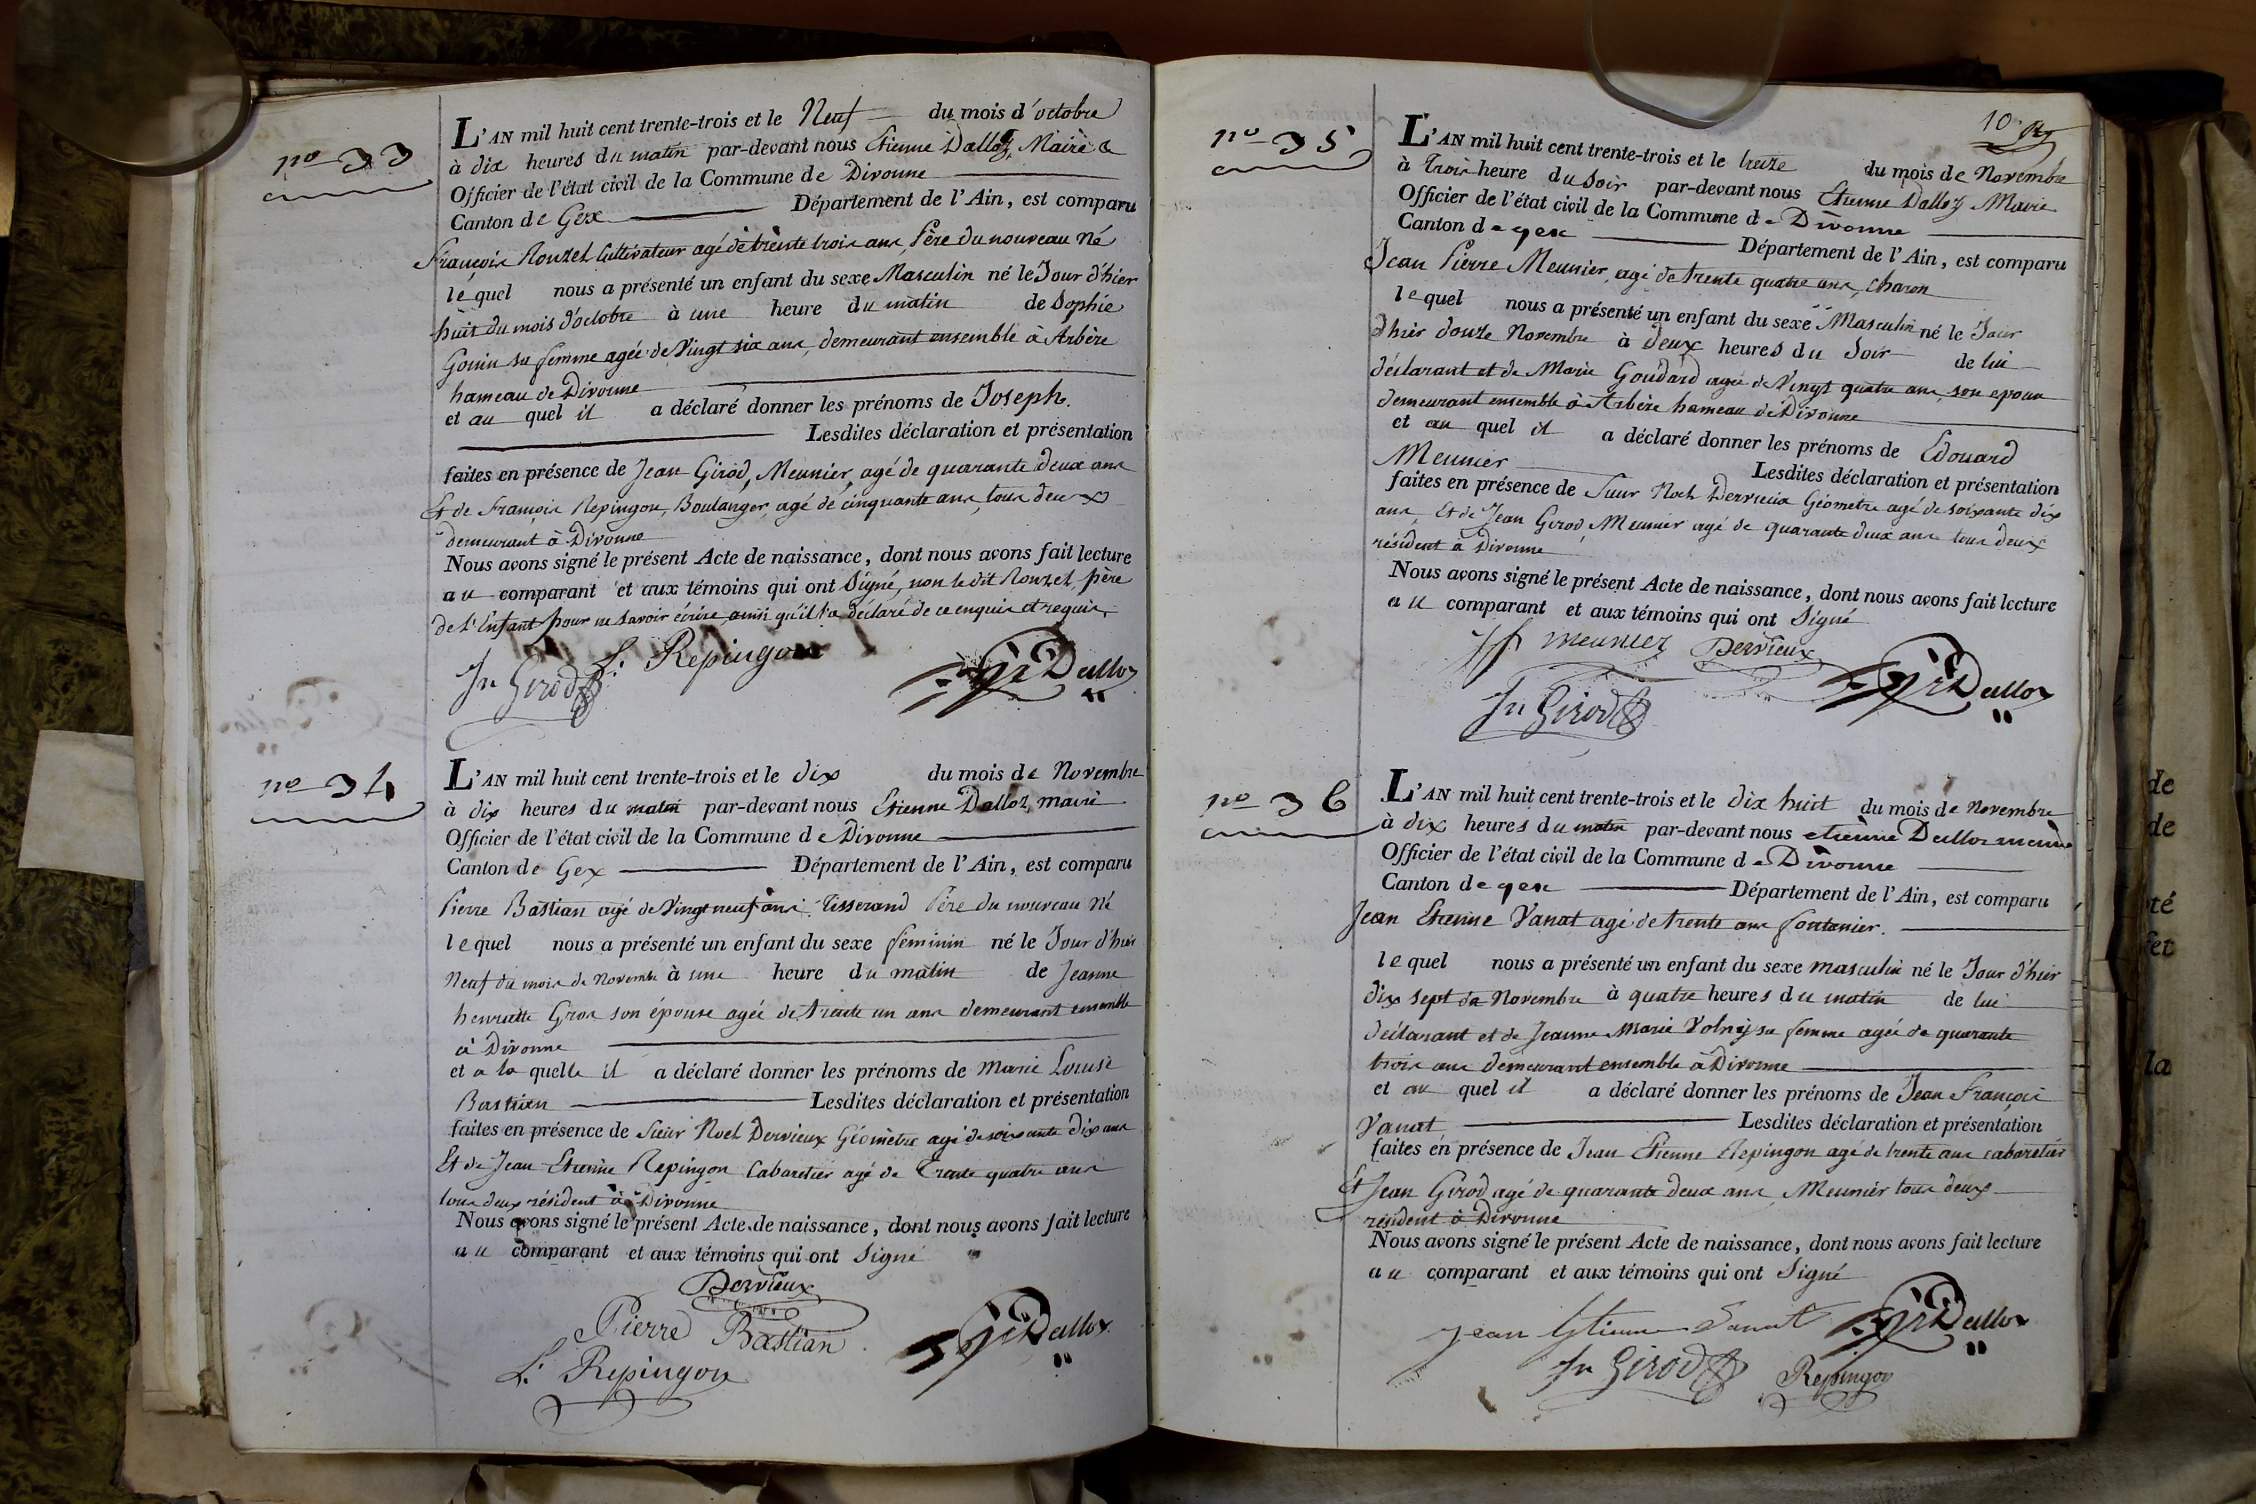 nº 33
L'AN mil huit cent trente-trois et le Neuf du mois d'octobre
à dix heures du matin par-devant nous Etienne Dalloz, Maire &
Officier de l'état civil de la Commune de Divonne
Canton de Gex Département de l'Ain, est comparu
François Rouzet Cultivateur agé de trente trois ans, Père du nouveau né
lequel nous a présenté un enfant du sexe Masculin né le Jour d'hier
huit du mois d'octobre à une heure du matin de Sophie
Gouin sa femme agée de Vingt six ans, demeurant ensemble à Arbère
hameau de Divonne
et au quel il a déclaré donner les prénoms de Joseph.
Lesdites déclaration et présentation
faites en présence de Jean Girod, Meunier, agé de quarante deux ans
Et de François Repingon, Boulanger, agé de cinquante ans, tous deux
demeurant à Divonne
Nous avons signé le présent Acte de naissance, dont nous avons fait lecture
au comparant et aux témoins qui ont Signé, non le dit Rouzet, père
de l'Enfant pour ne savoir écrire, ainsi qu'il l'a déclaré de ce enquis et requis
Jn Girod F. Repingon Dalloz
nº 34
L'AN mil huit cent trente-trois et le dix du mois de Novembre
à dix heures du matin par-devant nous Etienne Dalloz, maire
Officier de l'état civil de la Commune de Divonne
Canton de Gex Département de l'Ain, est comparu
Pierre Bastian agé de Vingt neuf ans Tisserand Père du nouveau né
lequel nous a présenté un enfant du sexe feminin né le Jour d'hier
Neuf du mois de Novembre à une heure du matin de Jeanne
henriette Gros son épouse agée de trente un ans demeurant ensemble
à Divonne
et a la quelle il a déclaré donner les prénoms de Marie Louise
Bastian Lesdites déclaration et présentation
faites en présence de Sieur Noel Dervieux Géomètre agé de soixante dix ans
Et de Jean Etienne Repingon Cabaretier agé de Trente quatre ans
tous deux résident à Divonne
Nous avons signé le présent Acte de naissance, dont nous avons fait lecture
au comparant et aux témoins qui ont Signé
Dervieux
Pierre Bastian Dalloz
Repingon
10
nº 35
L'AN mil huit cent trente-trois et le treize du mois de Novembre
à trois heure du soir par-devant nous Etienne Dalloz Maire
Officier de l'état civil de la Commune de Divonne
Canton de gex Département de l'Ain, est comparu
Jean Pierre Meunier, agé de trente quatre ans, charon
lequel nous a présenté un enfant du sexe Masculin né le Jour
d'hier douze Novembre à deux heures du Soir de lui
déclarant et de Marie Goudard agée de Vingt quatre ans, son epouse
demeurant ensemble à Arbère hameau de Divonne
et au quel il a déclaré donner les prénoms de Edouard
Meunier Lesdites déclaration et présentation
faites en présence de Sieur Noel Dervieux Géomètre agé de soixante dix
ans, Et de Jean Girod, Meunier agé de quarante deux ans tous deux
résident à Divonne
Nous avons signé le présent Acte de naissance, dont nous avons fait lecture
au comparant et aux témoins qui ont Signé
meunier Dervieux Dalloz
Jn Girod
nº 36
L'AN mil huit cent trente-trois et le dix huit du mois de Novembre
à dix heures du matin par-devant nous etienne Dalloz maire
Officier de l'état civil de la Commune de Divonne
Canton de gex Département de l'Ain, est comparu
Jean Etienne Vanat agé de trente ans fontanier.
lequel nous a présenté un enfant du sexe masculin né le Jour d'hier
dix sept de Novembre à quatre heures du matin de lui
déclarant et de Jeanne Marie Volny sa femme agée de quarante
trois ans demeurant ensemble à Divonne
et au quel il a déclaré donner les prénoms de Jean François
Vanat Lesdites déclaration et présentation
faites en présence de Jean Etienne Repingon agé de trente ans cabaretier
Et Jean Girod agé de quarante deux ans, Meunier tous deux
résident à Divonne
Nous avons signé le présent Acte de naissance, dont nous avons fait lecture
au comparant et aux témoins qui ont Signé
Jean Etienne Vanat Dalloz
Jn Girod Repingon
de
de
té
et
la